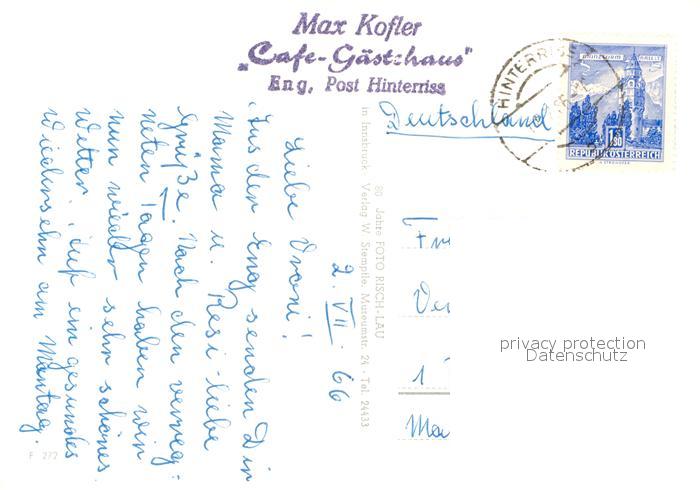 Max Kofler
„Cafe-Gästehaus"
Eng, Post Hinterriss
HINTERRISS
MÜNZTURM HALL I. T.
1.80
REPUBLIK ÖSTERREICH
Deutschland
2. VII. 66
Liebe Vroni!
Aus der Eng senden Dir
Mama u. Resi - liebe
Grüße. Nach den verreg-
neten Tagen haben wir
nun wieder sehr schönes
Wetter. Auf ein gesundes
Wiedersehn am Montag.
80 Jahre FOTO RISCH-LAU
in Innsbruck Verlag W Stempfle, Museumstr. 24 - Tel. 24433
F 272
Fr
1
Ma
privacy protection
Datenschutz